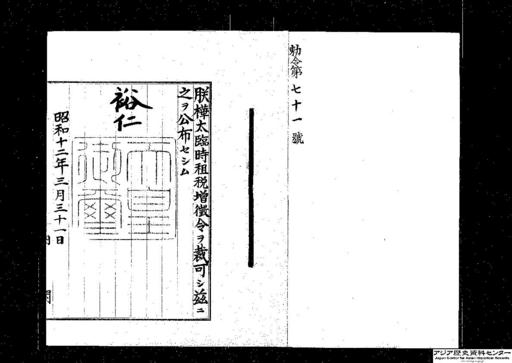 勅令第七十一號
朕樺太臨時租税増徴令ヲ裁可シ茲ニ
之ヲ公布セシム
裕仁
天皇御璽
昭和十二年三月三十一日
アジア歴史資料センター
Japan Center for Asian Historical Records